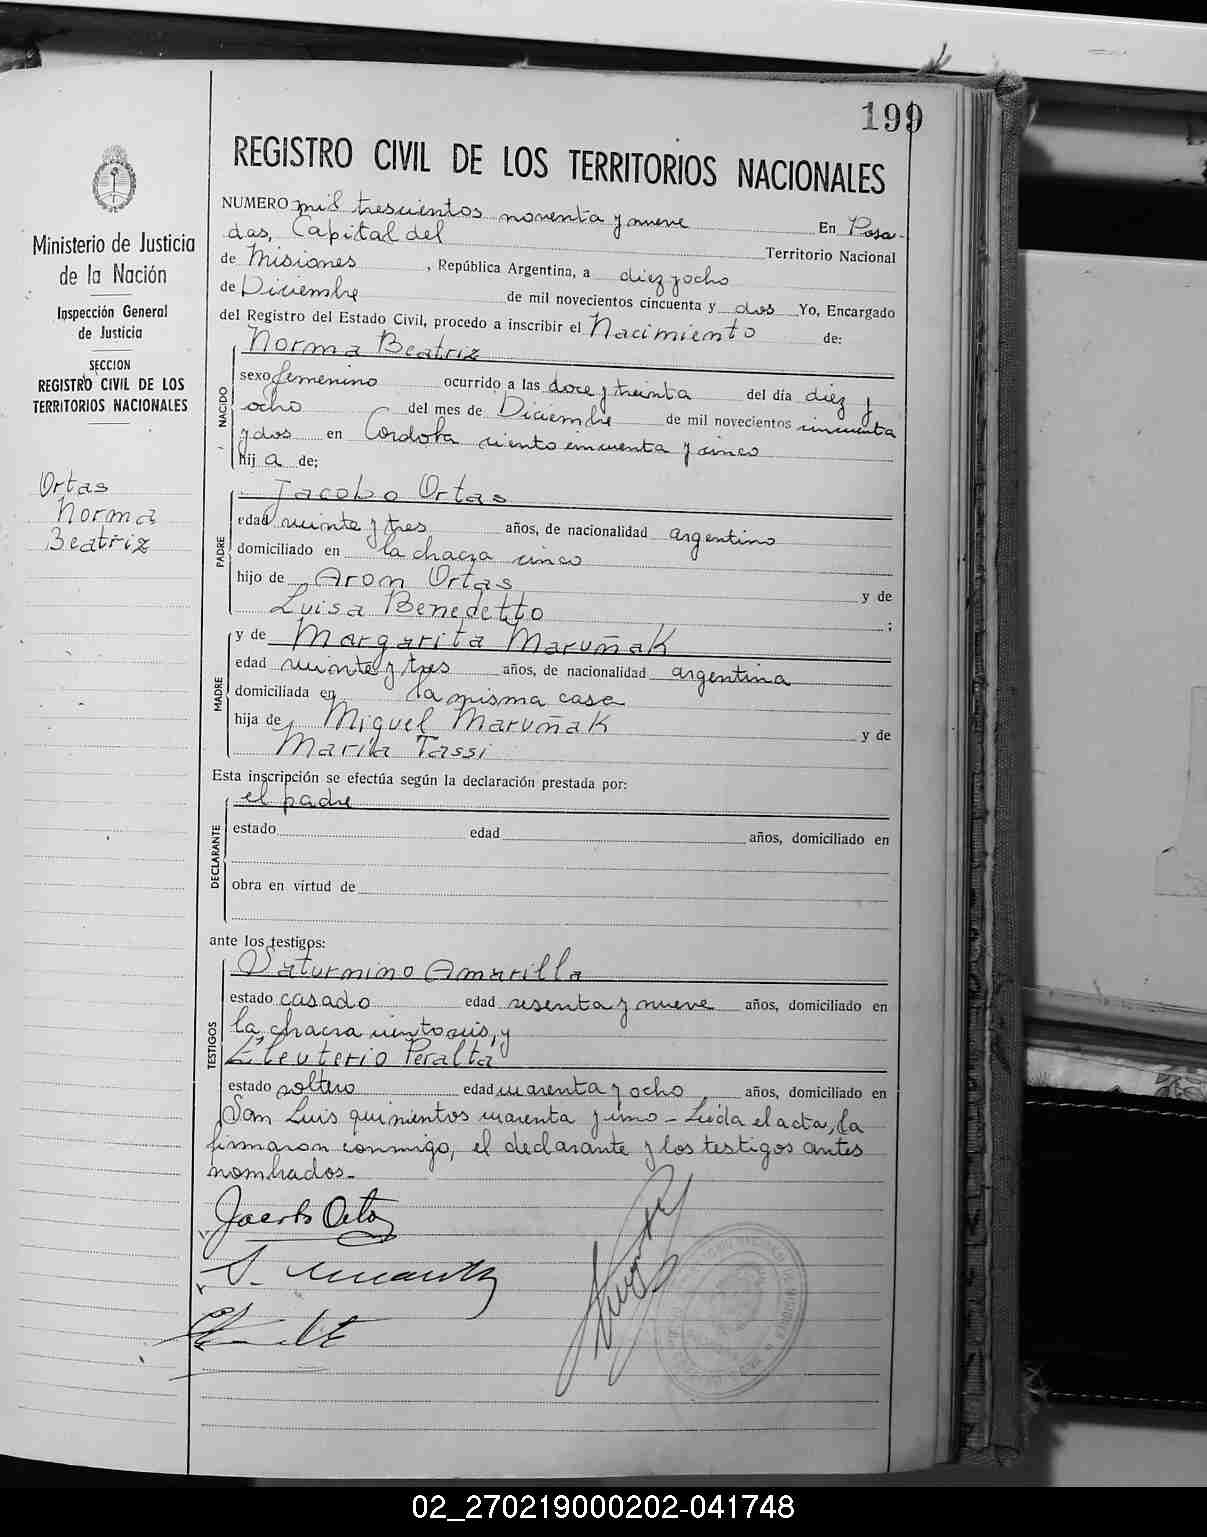 199
REGISTRO CIVIL DE LOS TERRITORIOS NACIONALES
Ministerio de Justicia
de la Nación
Inspección General
de Justicia
SECCION
REGISTRO CIVIL DE LOS
TERRITORIOS NACIONALES
Ortas
Norma
Beatriz
NUMERO mil trescientos noventa y nueve En Posa-
das, Capital del Territorio Nacional
de Misiones, República Argentina, a diez y ocho
de Diciembre de mil novecientos cincuenta y dos Yo, Encargado
del Registro del Estado Civil, procedo a inscribir el Nacimiento de:
Norma Beatriz
NACIDO
sexo femenino ocurrido a las doce y treinta del día diez y
ocho del mes de Diciembre de mil novecientos cincuenta
y dos en Córdoba ciento cincuenta y cinco
hij a de;
Jacobo Ortas
PADRE
edad veinte y tres años, de nacionalidad argentino
domiciliado en la chacra cinco
hijo de Aron Ortas y de
Luisa Benedetto ;
y de Margarita Maruñak
MADRE
edad veinte y tres años, de nacionalidad argentina
domiciliada en la misma casa
hija de Miguel Maruñak y de
María Tassi
Esta inscripción se efectúa según la declaración prestada por:
el padre
DECLARANTE
estado edad años, domiciliado en
obra en virtud de
ante los testigos:
Saturnino Amarilla
TESTIGOS
estado casado edad sesenta y nueve años, domiciliado en
la chacra ciento seis, y
Eleuterio Peralta
estado soltero edad cuarenta y ocho años, domiciliado en
San Luis quinientos cuarenta y uno - Leída el acta, la
firmaron conmigo, el declarante y los testigos antes
nombrados.-
Jacobo Ortas
02_270219000202-041748